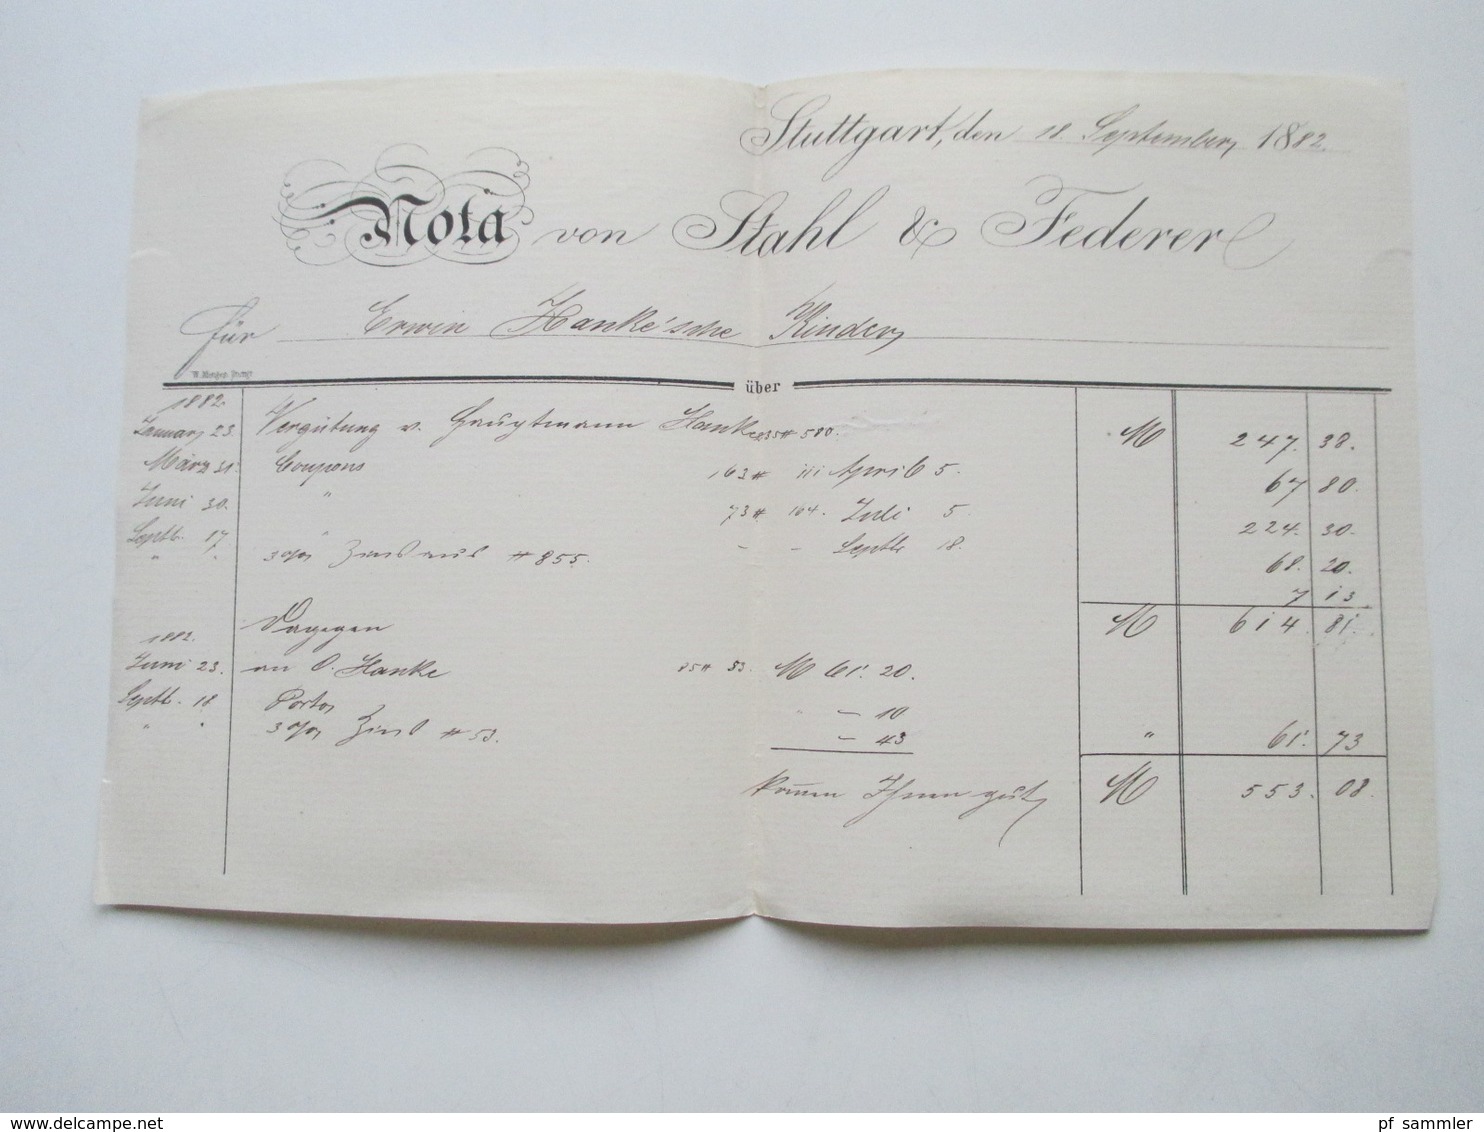 Stuttgart, den 18. September 1882.
Nota von Stahl & Federer
für Erwin Hanke'sche Kinder
über
1882.
Januar 23. Vergütung v. Hauptmann Hanke 235 # 580. M 247. 38.
März 31. Coupons 163 # 111 April 5. 67 80.
Juni 30. " 73 # 164. Juli 5. 224. 30.
Septb. 17. " - - Septb. 18. 68. 20.
" " 3% Zins aus # 855. 7 13
M 614. 81.
Dagegen
1882.
Juni 23. an O. Hanke 85 # 53. M 61. 20.
Septb. 18. Porto - 10
" " 3% Zins # 53. - 43 " 61. 73
kommen Ihnen gut M 553. 08.
pf sammler